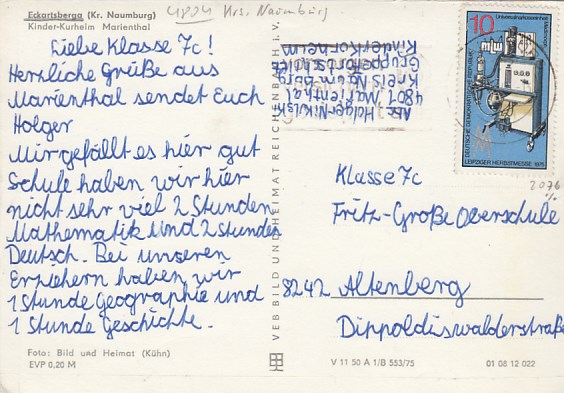 Eckartsberga (Kr. Naumburg)
Kinder-Kurheim Marienthal
4804 Krs. Naumburg
Liebe Klasse 7c!
Herzliche Grüße aus
Marienthal sendet Euch
Holger
Mir gefällt es hier gut
Schule haben wir hier
nicht sehr viel 2 Stunden
Mathematik und 2 Stunden
Deutsch. Bei unseren
Erziehern haben wir
1 Stunde Geographie und
1 Stunde Geschichte.
Foto: Bild und Heimat (Kühn)
EVP 0,20 M
VEB BILD UND HEIMAT REICHENBACH i. V.
Abs: Holger
4801 Marienthal
Kreis Naumburg
Kinderkorheim
10
DEUTSCHE DEMOKRATISCHE REPUBLIK
LEIPZIGER HERBSTMESSE 1975
2076
Klasse 7c
Fritz-Große Oberschule
8242 Altenberg
Dippoldiswalderstraße
V 11 50 A 1/B 553/75
01 08 12 022